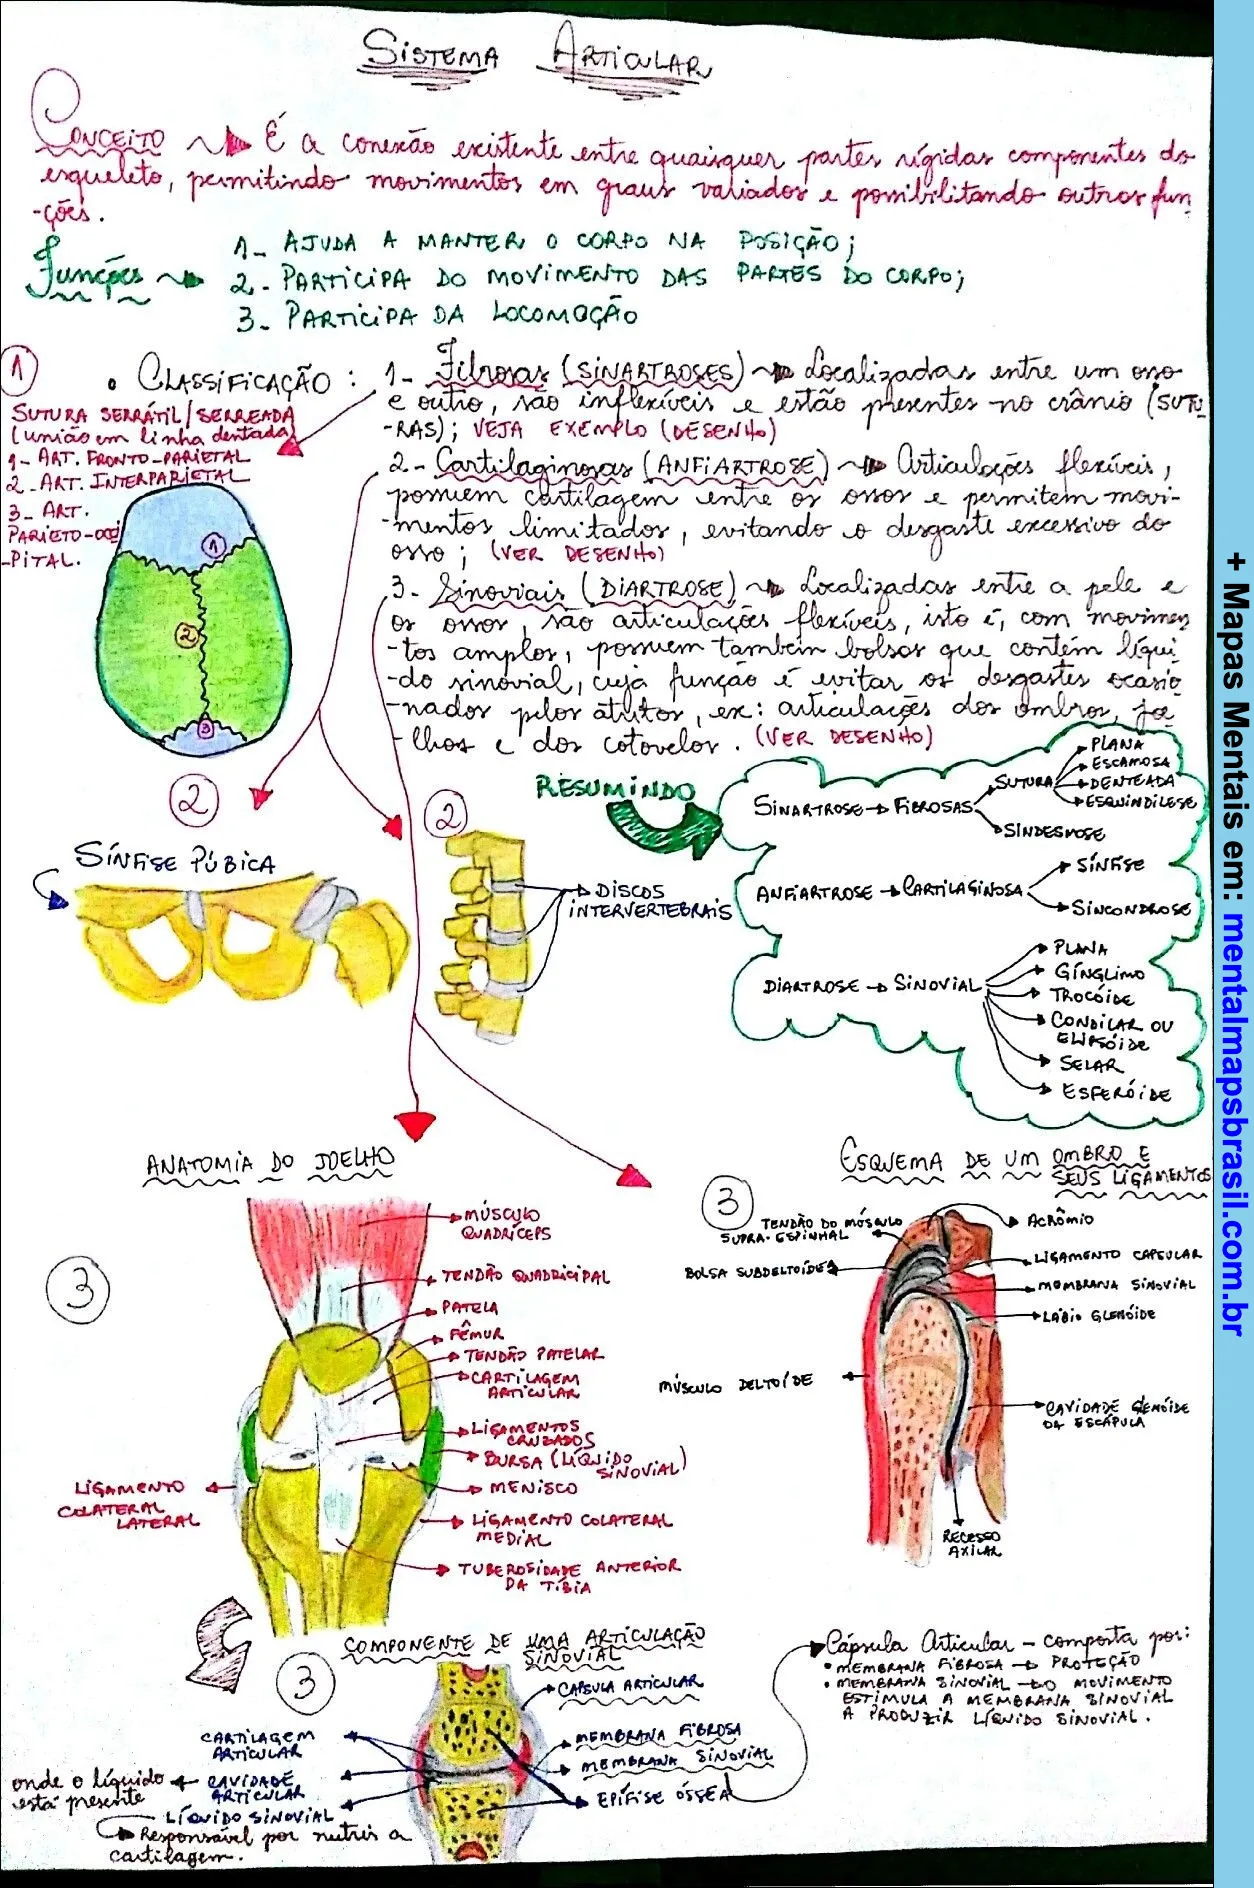 SISTEMA ARTICULAR
CONCEITO É a conexão existente entre quaisquer partes rígidas componentes do
esqueleto, permitindo movimentos em graus variados e possibilitando outras fun
-ções.
Funções
1- AJUDA A MANTER O CORPO NA POSIÇÃO;
2- PARTICIPA DO MOVIMENTO DAS PARTES DO CORPO;
3- PARTICIPA DA LOCOMOÇÃO
1
• CLASSIFICAÇÃO:
1- Fibrosas (SINARTROSES) Localizadas entre um osso
e outro, são inflexíveis e estão presentes no crânio (SUTU
-RAS); VEJA EXEMPLO (DESENHO)
2- Cartilaginosas (ANFIARTROSE) Articulações flexíveis,
possuem cartilagem entre os ossos e permitem movi-
-mentos limitados, evitando o desgaste excessivo do
osso; (VER DESENHO)
3- Sinoviais (DIARTROSE) Localizadas entre a pele e
os ossos, são articulações flexíveis, isto é, com movimen
-tos amplos, possuem também bolsas que contém líqui
-do sinovial, cuja função é evitar os desgastes ocasio
-nados pelos atritos, ex: articulações dos ombros, joe
-lhos e dos cotovelos. (VER DESENHO)
SUTURA SERRÁTIL/SERREADA
(união em linha dentada)
1- ART. FRONTO-PARIETAL
2- ART. INTERPARIETAL
3- ART.
PARIETO-OCCI
-PITAL.
1
2
3
2
SÍNFISE PÚBICA
2
DISCOS
INTERVERTEBRAIS
RESUMINDO
SINARTROSE FIBROSAS
SUTURA
PLANA
ESCAMOSA
DENTEADA
ESQUINDILESE
SINDESMOSE
ANFIARTROSE CARTILAGINOSA
SÍNFISE
SINCONDROSE
DIARTROSE SINOVIAL
PLANA
GÍNGLIMO
TROCÓIDE
CONDILAR OU
ELIPSÓIDE
SELAR
ESFERÓIDE
ANATOMIA DO JOELHO
3
MÚSCULO
QUADRÍCEPS
TENDÃO QUADRICIPAL
PATELA
FÊMUR
TENDÃO PATELAR
CARTILAGEM
ARTICULAR
LIGAMENTOS
CRUZADOS
BURSA (LÍQUIDO
SINOVIAL)
MENISCO
LIGAMENTO COLATERAL
MEDIAL
TUBEROSIDADE ANTERIOR
DA TÍBIA
LIGAMENTO
COLATERAL
LATERAL
ESQUEMA DE UM OMBRO E
SEUS LIGAMENTOS
3
TENDÃO DO MÚSCULO
SUPRA-ESPINHAL
BOLSA SUBDELTOÍDEA
MÚSCULO DELTOÍDE
ACRÔMIO
LIGAMENTO CAPSULAR
MEMBRANA SINOVIAL
LÁBIO GLENÓIDE
CAVIDADE GLENÓIDE
DA ESCÁPULA
RECESSO
AXILAR
COMPONENTE DE UMA ARTICULAÇÃO
SINOVIAL
3
CÁPSULA ARTICULAR
MEMBRANA FIBROSA
MEMBRANA SINOVIAL
EPÍFISE ÓSSEA
CARTILAGEM
ARTICULAR
onde o líquido
está presente
CAVIDADE
ARTICULAR
LÍQUIDO SINOVIAL
Responsável por nutrir a
cartilagem.
Cápsula Articular - composta por:
• MEMBRANA FIBROSA PROTEÇÃO
• MEMBRANA SINOVIAL O MOVIMENTO
ESTIMULA A MEMBRANA SINOVIAL
A PRODUZIR LÍQUIDO SINOVIAL.
+ Mapas Mentais em: mentalmapsbrasil.com.br